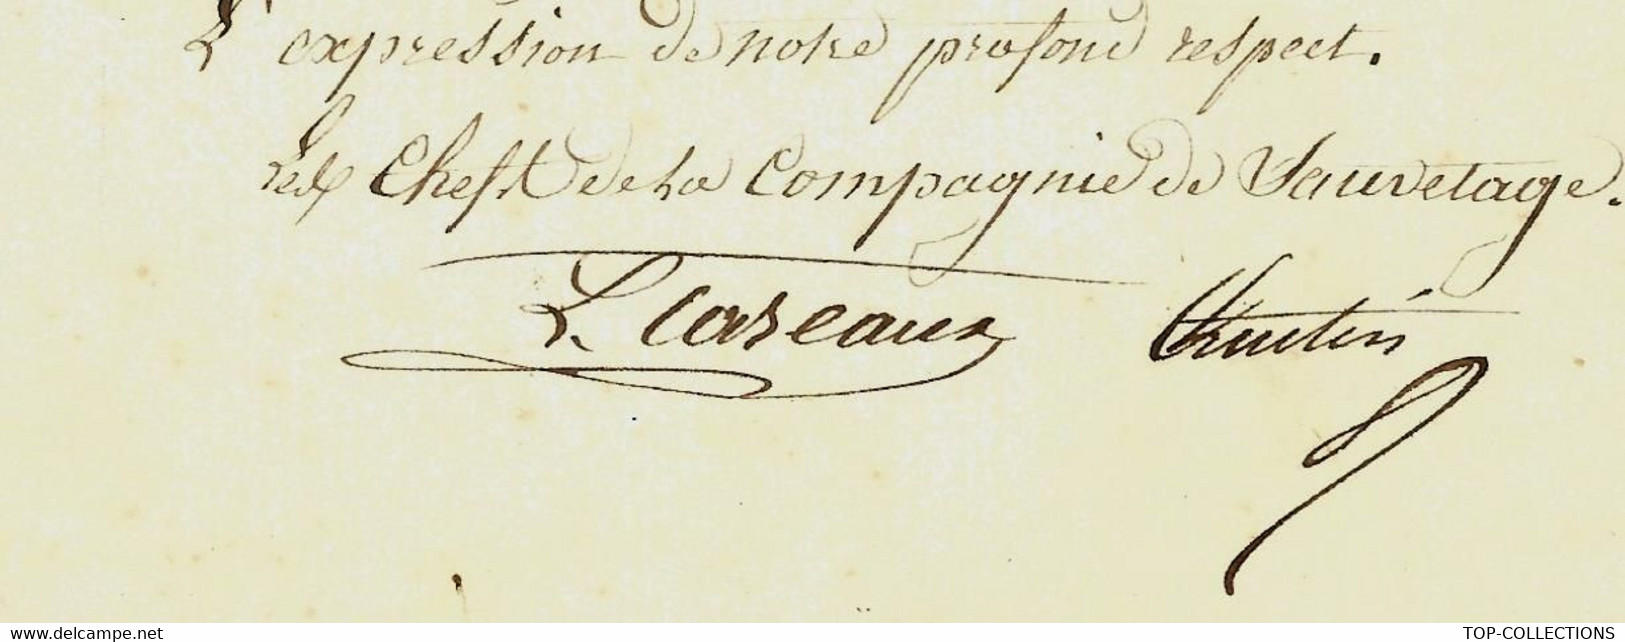 L'expression de notre profond respect.
Les Chefs de la Compagnie de Sauvetage.
L. Cazeaux
www.delcampe.net TOP-COLLECTIONS